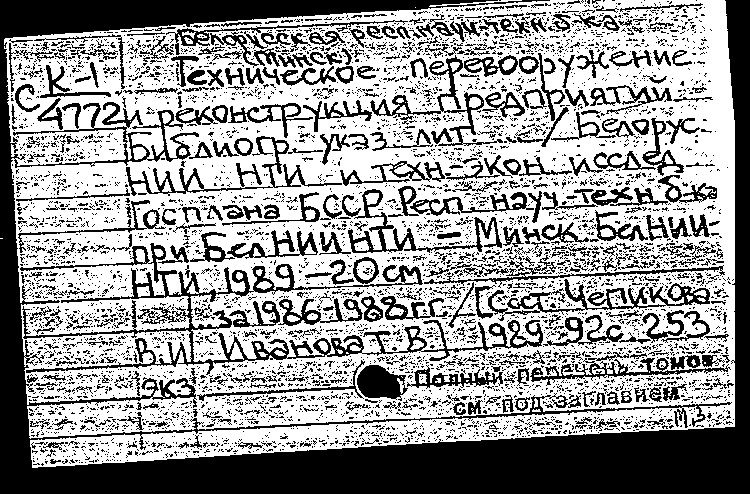 Белорусская респ. науч-техн. б-ка
(Минск).
С К-1
4772
Техническое перевооружение
и реконструкция предприятий:
Библиогр. указ. лит. ... / Белорус.
НИИ НТИ и техн.-экон. исслед.
Госплана БССР, Респ. науч.-техн. б-ка
при БелНИИНТИ. — Минск: БелНИИ-
НТИ, 1989 — 20 см
... за 1986-1988 г.г. / [Сост. Чепикова
В.И., Иванова Т.В.] 1989. 92с. 253
экз.
Полный перечень томов
см. под заглавием.
М.З.